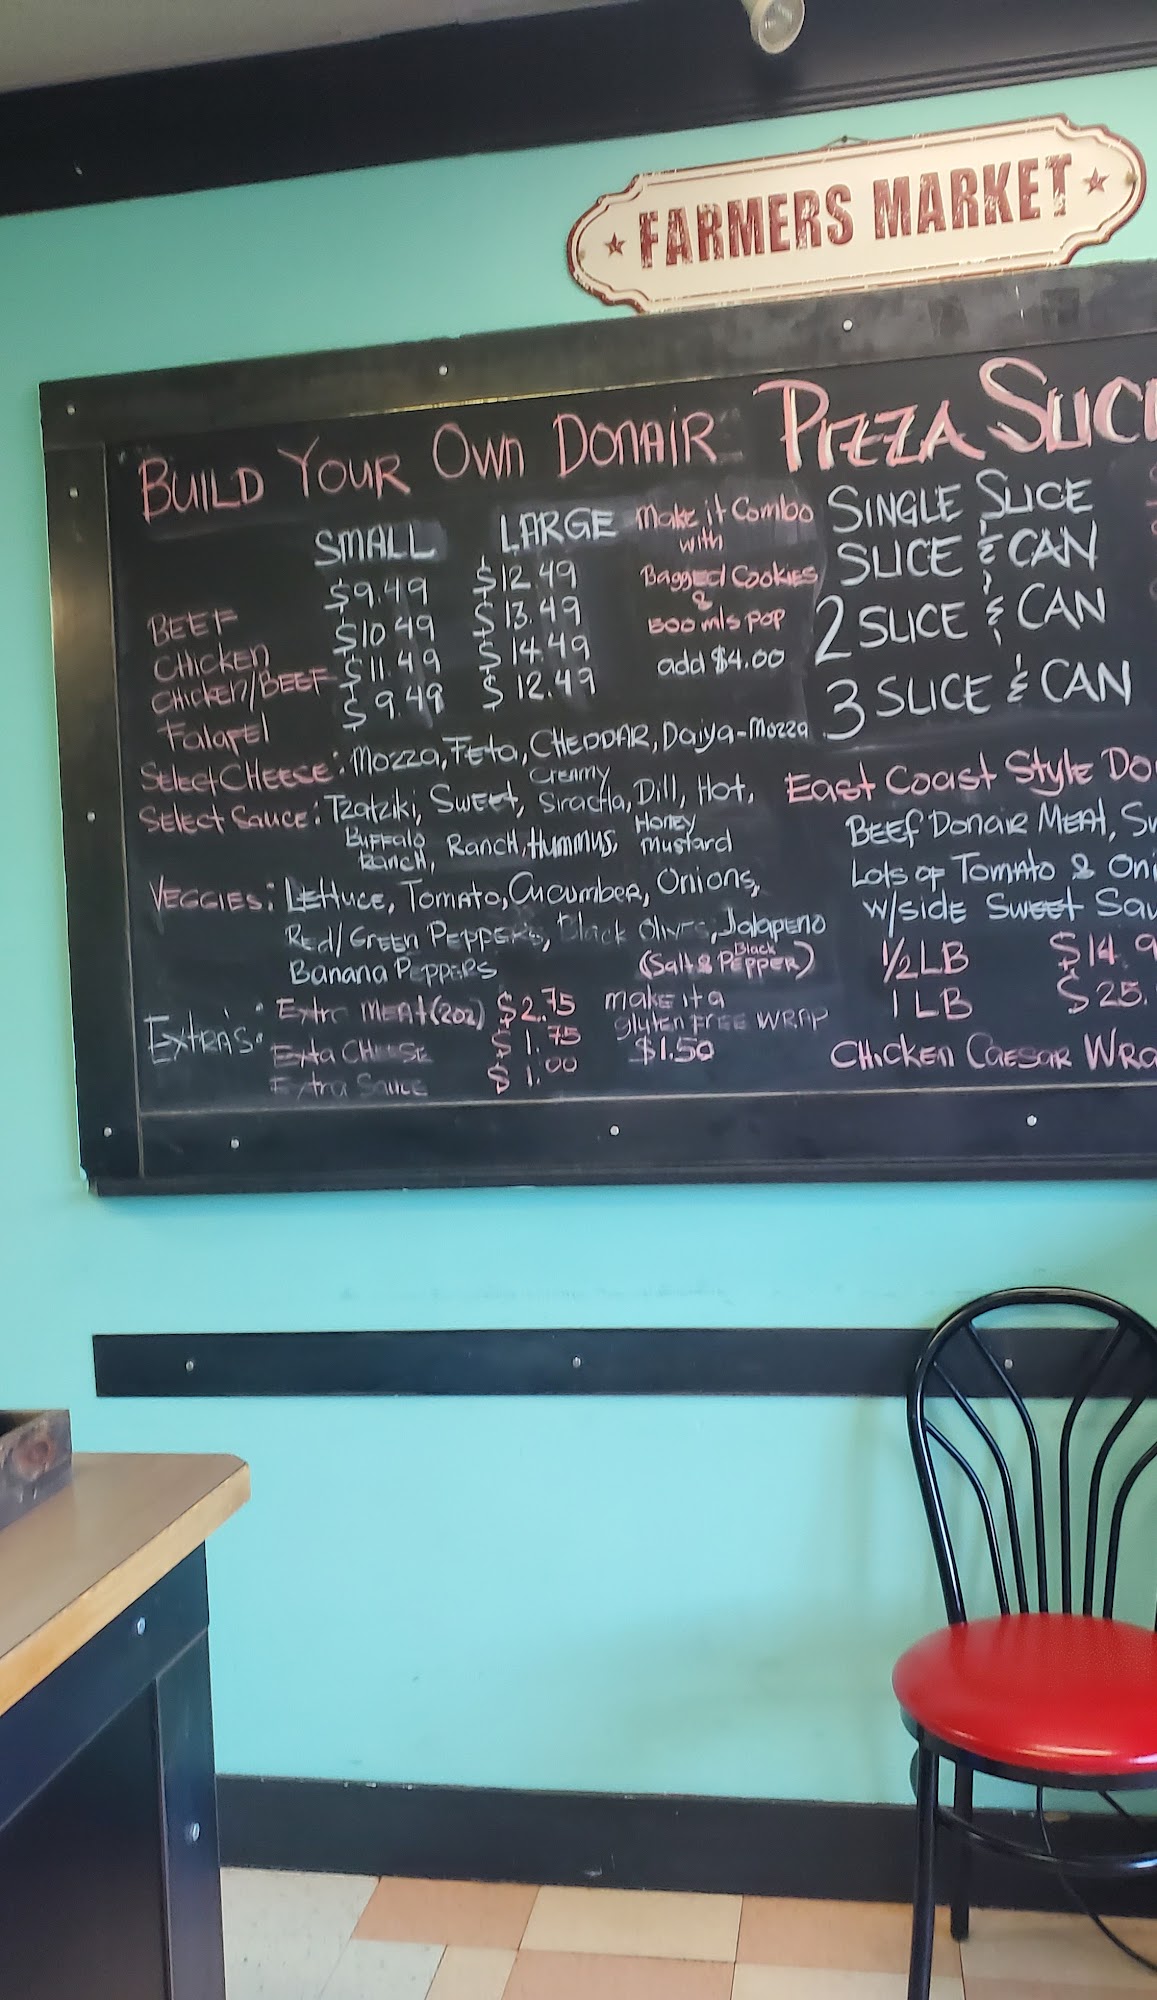 FARMERS MARKET
BUILD YOUR OWN DONAIR
SMALL LARGE
BEEF $9.49 $12.49
CHICKEN $10.49 $13.49
CHICKEN/BEEF $11.49 $14.49
Falafel $9.49 $12.49
Make it Combo
with
Bagged Cookies
&
500 mls pop
add $4.00
Select CHEESE: Mozza, Feta, CHEDDAR, Daiya-Mozza
Select Sauce: Tzatziki, Sweet, Creamy Siracha, Dill, Hot,
Buffalo Ranch, Ranch, Hummus, Honey Mustard
VEGGIES: Lettuce, Tomato, Cucumber, Onions,
Red/Green Peppers, Black Olives, Jalapeno
Banana Peppers (Salt & Black PEPPER)
Extra's:
Extra MEAT (2oz) $2.75
Exta CHEESE $1.75
Extra Sauce $1.00
make it a
gluten FREE WRAP
$1.50
PIZZA
SINGLE SLICE
SLICE & CAN
2 SLICE & CAN
3 SLICE & CAN
East Coast Style
BEEF Donair Meat,
Lots of Tomato &
w/side Sweet
1/2 LB $14.9
1 LB $25.
CHICKEN CAESAR